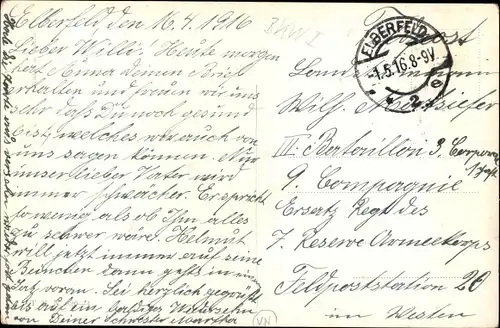 Elberfeld, den 16.4.1916
Lieber Willi, Heute morgen
hat Anna deinen Brief
erhalten und freuen wir uns
sehr daß Du noch gesund
bist, welches wir auch von
uns sagen können. Nur
unser lieber Vater wird
immer schwächer. Er spricht
so wenig als ob Ihm alles
zu schwer wäre. Helmut
will jetzt immer auf seine
Beinchen dann gehts in ein
voran. Sei herzlich gegrüßt
als auf ein baldiges Wiedersehn
von Deiner Schwester Martha
ELBERFELD
-1.5.16.8-9V
* 2 e
Feldpost
Wilh.
III. Bataillon 3. Corporal
schaft
9. Compagnie
Ersatz Regt des
7. Reserve Armeekorps
Feldpoststation 20
im Westen
VN